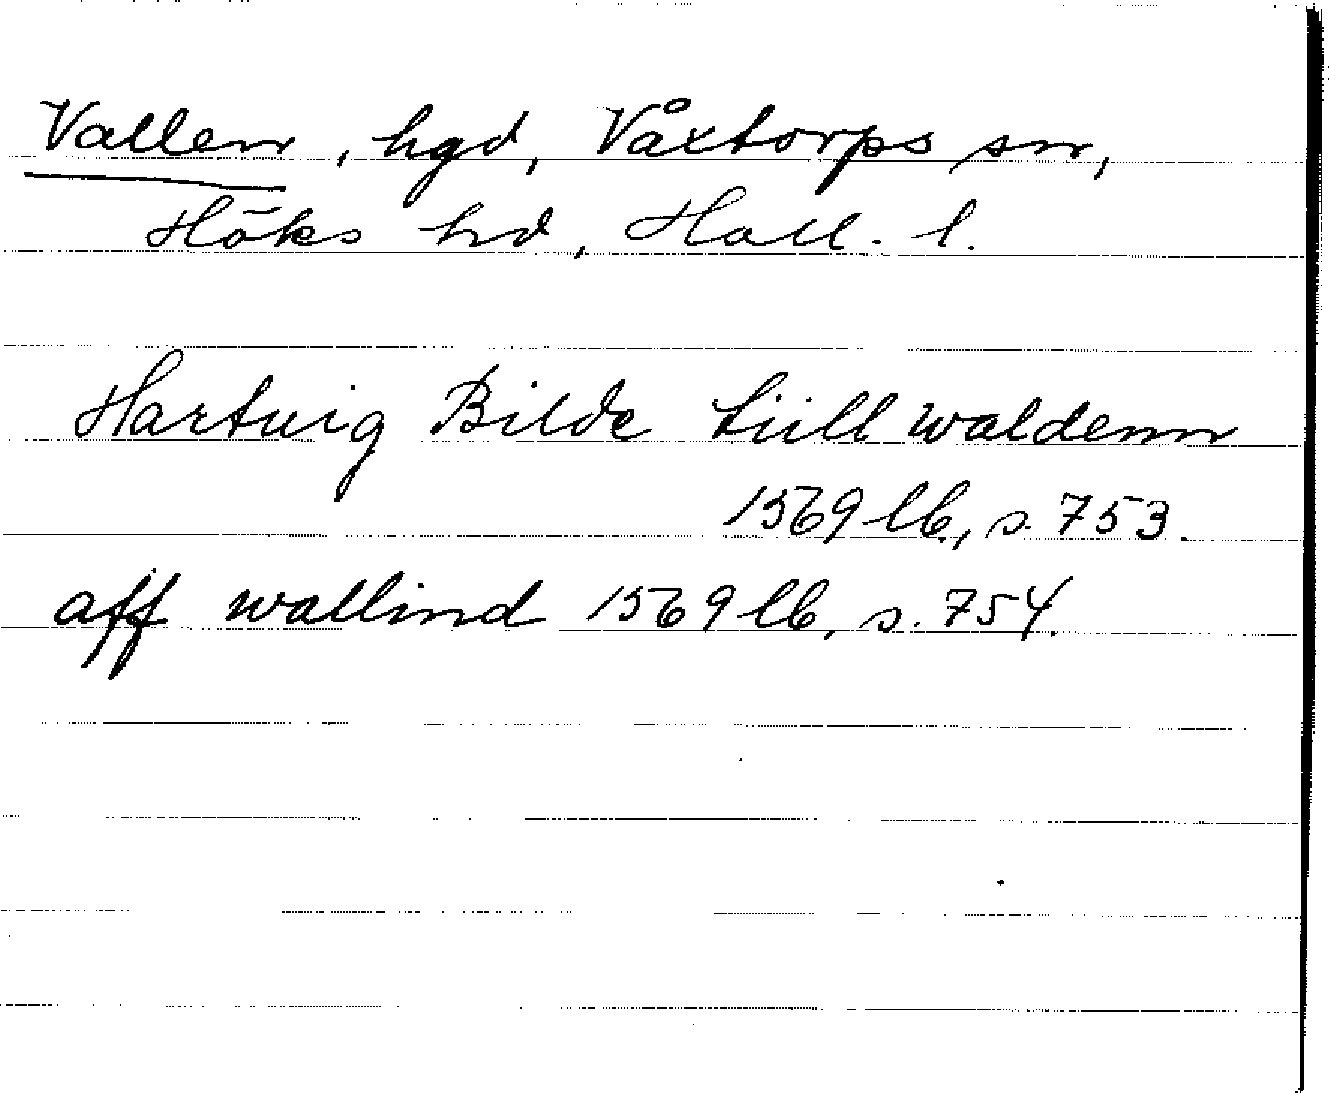 Vallen, hgd, Våxtorps sn,
Höks hd, Hall. l.
Hartuig Bilde tiill waldenn
1569 lb, s. 753.
aff wallind 1569 lb, s. 754.